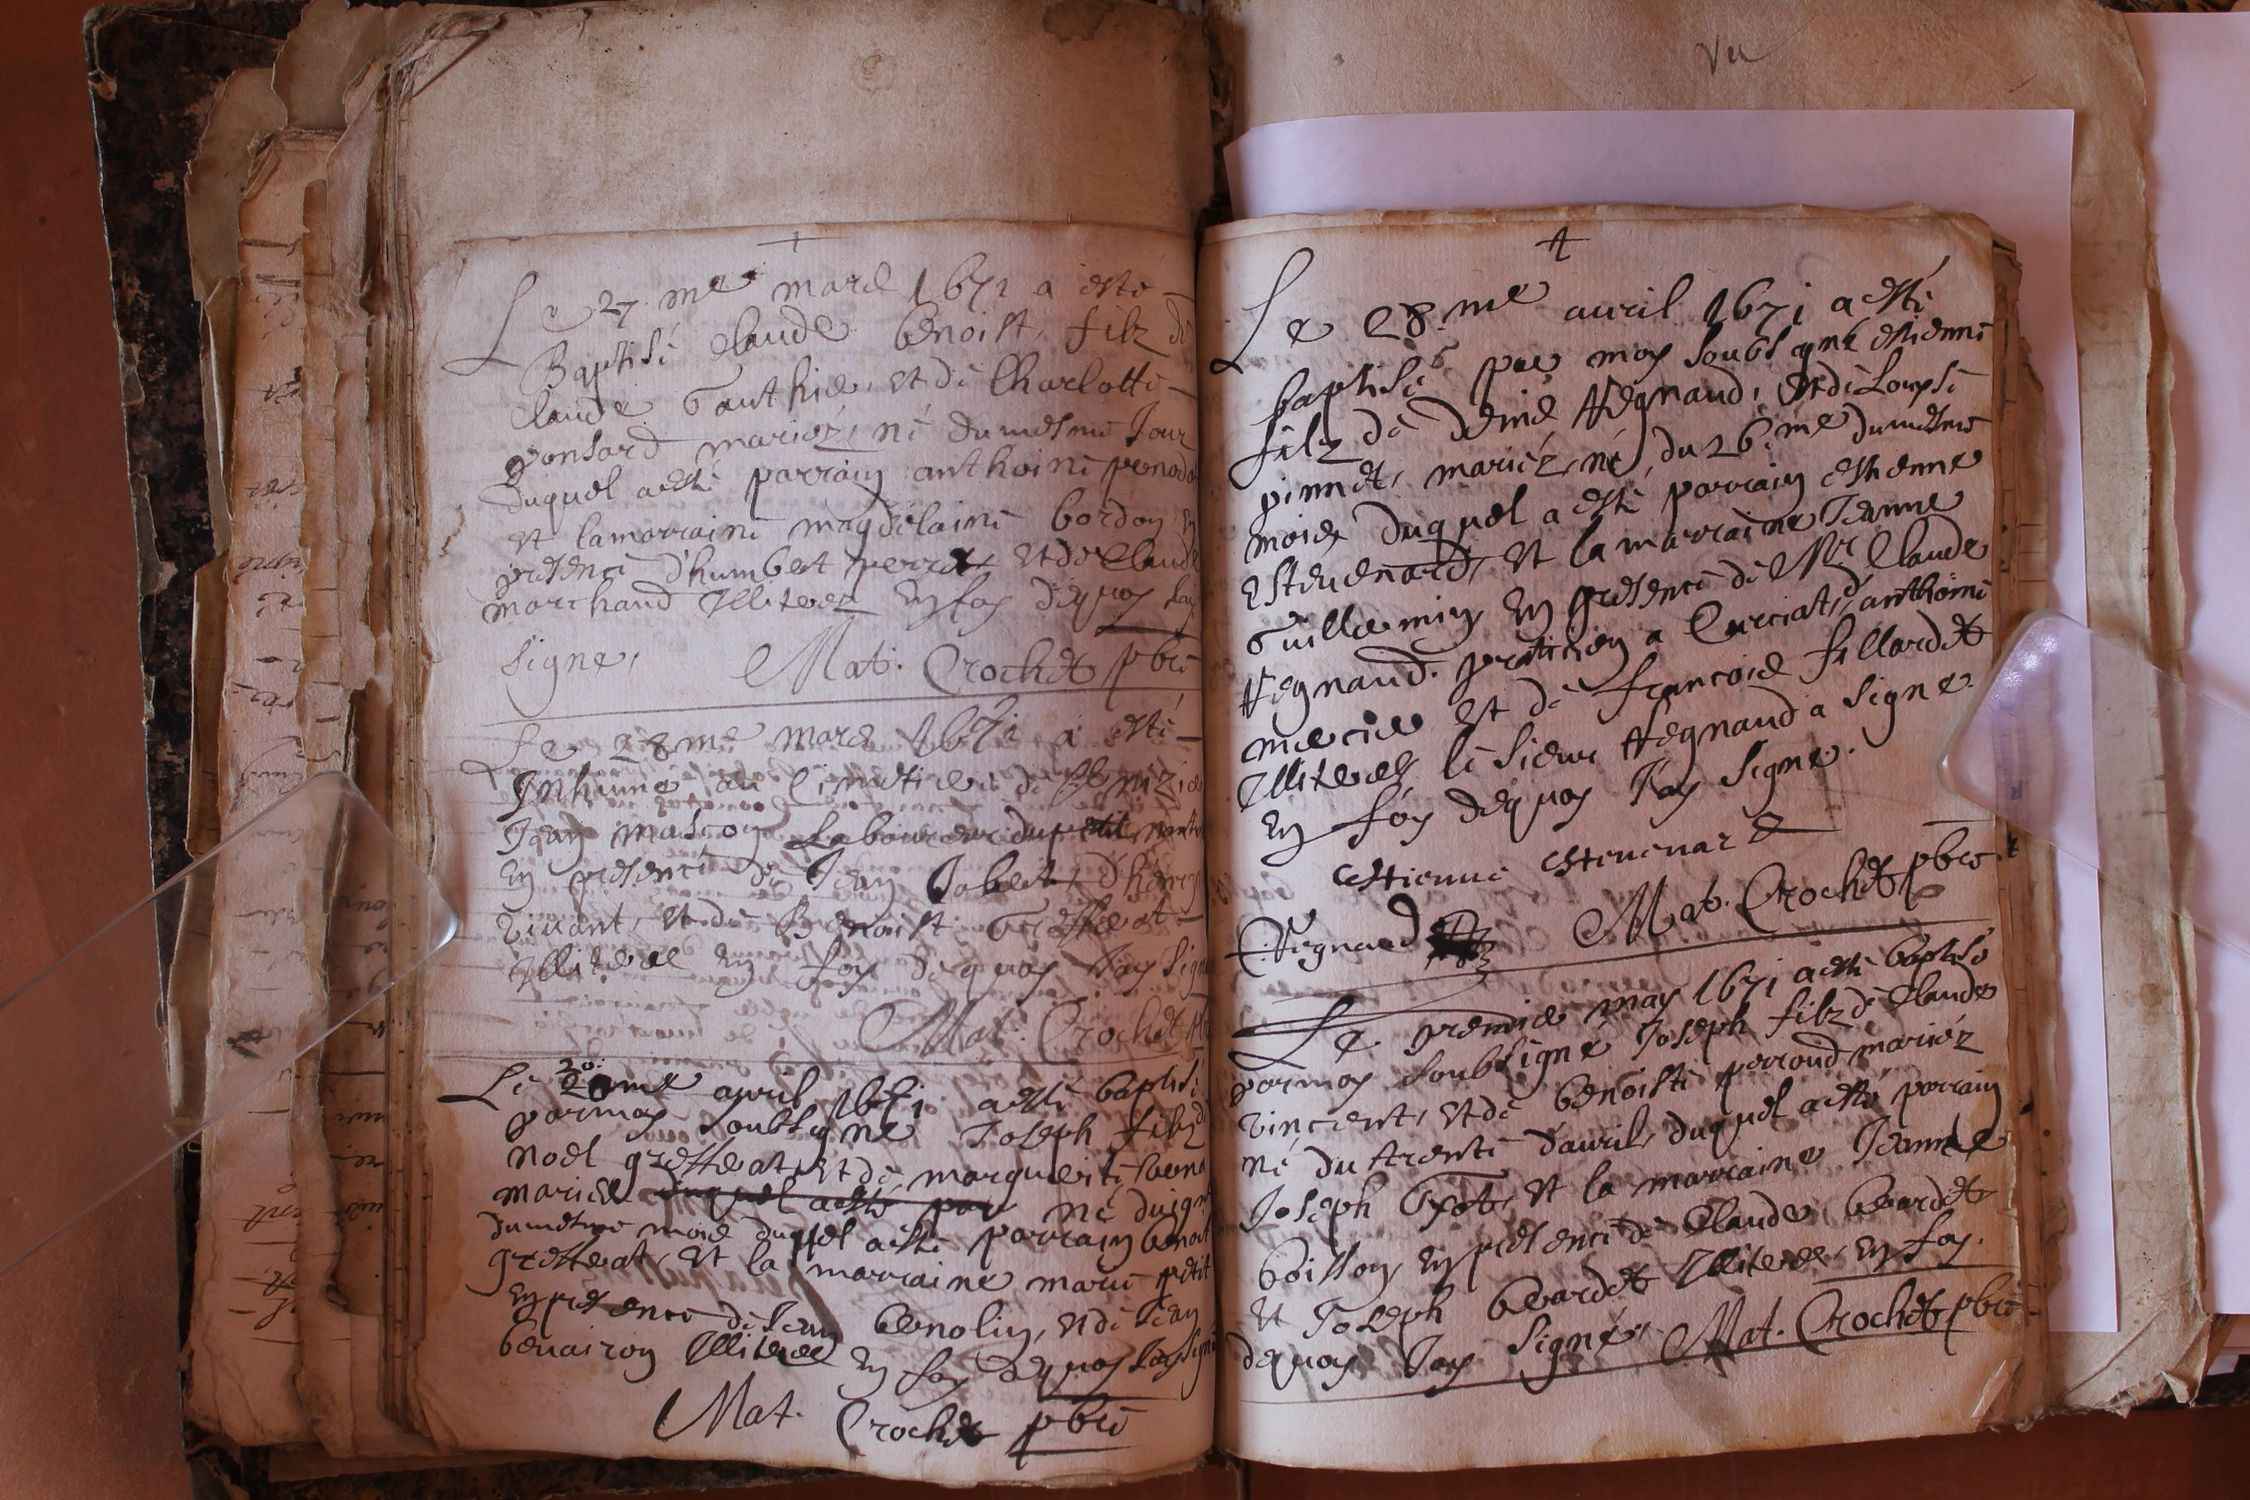 Le 27.me mars 1671 a esté
Baptisé Claude benoist, filz de
Claude Gauthie, et de Charlotte
ponsard mariéz, né dumesme Jour
duquel aesté parrain anthoine
et lamarraine magdelaine bordon en
presence d'humbert perret et de Claude
marchand Illiterez En foy dequoy Jay
signe, Mat. Crochet pbre
Le 28me mars 1671 a esté
Inhumé au Cimetiere de St nizier
Jean mascon Laboureur dupetit
En presence de Jean Jobert, d'henry
vivant, et de Benoist
Illiterez En foy dequoy Jay signe
Mat. Crochet
Le 20.me avril 1671 aesté baptisé
parmoy soubsigné Joseph filz de
noel greffeat, et de marguerite
mariez duquel aesté par né
dumesme mois duquel aesté parrain benoist
greffeat, et la marraine marie petit
En presence de Jean, et de Jean
Illiterez En foy dequoy Jay signé
Mat. Crochet pbre
vu
Le 28.me avril 1671 a esté
baptisé par moy soubsigné estienne
filz de denis Regnaud, et de Louyse
pinnet, mariéz, né, du 26.me dumesme
mois duquel a esté parrain estienne
Estevenard, et la marraine Jeanne
Guillermin, En presence de Mr Claude
Regnaud praticien a Curciat, d'anthoine
mercie et de francois fillardet
Illiterez le sieur Regnaud a signe
En foy dequoy Jay signe.
estienne estevenard
C. Regnaud Mat. Crochet pbre
Le premie may 1671 aesté baptisé
parmoy soubsigné Joseph filz de Claude
vincent, et de benoiste perroud mariéz
né du trente d'avril, duquel aesté parrain
Joseph, et la marraine Jeanne
boisson, En presence de Claude
et Joseph Illiterez En foy.
dequoy Jay signé, Mat. Crochet pbre